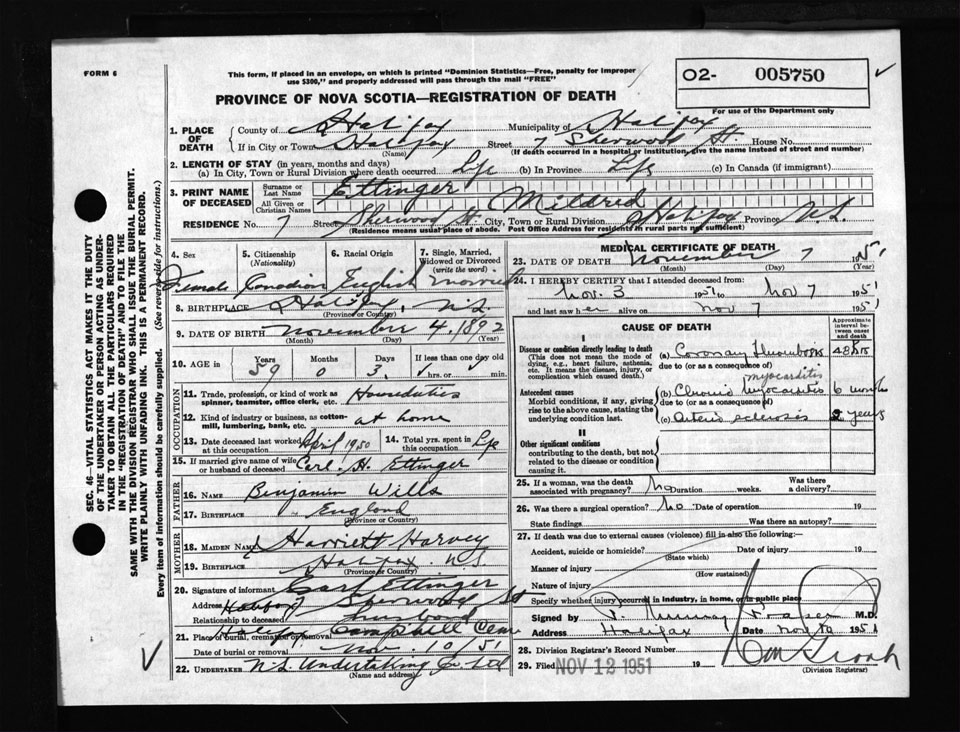 FORM 6
This form, if placed in an envelope, on which is printed "Dominion Statistics—Free, penalty for improper
use $300," and properly addressed will pass through the mail "FREE"
O2- 005750
For use of the Department only
PROVINCE OF NOVA SCOTIA—REGISTRATION OF DEATH
1. PLACE OF DEATH { County of Halifax Municipality of Halifax
If in City or Town Halifax (Name) Street 7 Sherwood St. House No.
(If death occurred in a hospital or institution, give the name instead of street and number)
2. LENGTH OF STAY (in years, months and days)
(a) In City, Town or Rural Division where death occurred Life (b) In Province Life (c) In Canada (if immigrant)
3. PRINT NAME OF DECEASED { Surname or Last Name Ettinger
All Given or Christian Names Mildred
RESIDENCE No. 7 Street Sherwood St. City, Town or Rural Division Halifax Province N.S.
(Residence means usual place of abode. Post Office Address for residents in rural parts not sufficient)
4. Sex 5. Citizenship (Nationality) 6. Racial Origin 7. Single, Married, Widowed or Divorced (write the word)
Female Canadian English Married
8. BIRTHPLACE Halifax, N.S.
(Province or Country)
9. DATE OF BIRTH November 4, 1892
(Month) (Day) (Year)
10. AGE in Years Months Days If less than one day old
59 0 3 hrs. or min.
OCCUPATION
11. Trade, profession, or kind of work as spinner, teamster, office clerk, etc. Houseduties
12. Kind of industry or business, as cotton-mill, lumbering, bank, etc. at home
13. Date deceased last worked at this occupation April 1950 14. Total yrs. spent in this occupation Life
15. If married give name of wife or husband of deceased Carl. H. Ettinger
FATHER
16. NAME Benjamin Wills
17. BIRTHPLACE England
(Province or Country)
MOTHER
18. MAIDEN NAME Harriett Harvey
19. BIRTHPLACE Halifax N.S.
(Province or Country)
20. Signature of informant Carl Ettinger
Address Halifax 7 Sherwood St
Relationship to deceased husband
21. Place of burial, cremation or removal Camphill Cem
Date of burial or removal Nov. 10/51
22. UNDERTAKER N.S. Undertaking Co. Ltd
(Name and address)
MEDICAL CERTIFICATE OF DEATH
23. DATE OF DEATH November 7 1951
(Month) (Day) (Year)
24. I HEREBY CERTIFY that I attended deceased from:
Nov. 3 1951 to Nov 7 1951
and last saw her alive on Nov 7 1951
CAUSE OF DEATH
Approximate interval between onset and death
I
Disease or condition directly leading to death
(This does not mean the mode of dying, e.g., heart failure, asthenia, etc. It means the disease, injury, or complication which caused death.)
(a) Coronary Thrombosis 48 hrs
due to (or as a consequence of)
myocarditis
Antecedent causes
Morbid conditions, if any, giving rise to the above cause, stating the underlying condition last.
(b) Chronic myocarditis 6 months
due to (or as a consequence of)
(c) Arterio sclerosis 2 years
II
Other significant conditions
contributing to the death, but not related to the disease or condition causing it.
25. If a woman, was the death associated with pregnancy? No Duration weeks. Was there a delivery?
26. Was there a surgical operation? No Date of operation 19
State findings Was there an autopsy?
27. If death was due to external causes (violence) fill in also the following:
Accident, suicide or homicide? Date of injury 19
(State which)
Manner of injury
(How sustained)
Nature of injury
Specify whether injury occurred in industry, in home, or in public place
Signed by Murray Fraser M.D.
Address Halifax Date Nov 1951
28. Division Registrar's Record Number
29. Filed NOV 12 1951 19
(Division Registrar)
SEC. 46—VITAL STATISTICS ACT MAKES IT THE DUTY
OF THE UNDERTAKER OR PERSON ACTING AS UNDER-
TAKER TO OBTAIN ALL THE PARTICULARS REQUIRED
IN THE "REGISTRATION OF DEATH" AND TO FILE THE
SAME WITH THE DIVISION REGISTRAR WHO SHALL ISSUE THE BURIAL PERMIT.
WRITE PLAINLY WITH UNFADING INK. THIS IS A PERMANENT RECORD.
Every item of information should be carefully supplied. (See reverse side for instructions.)